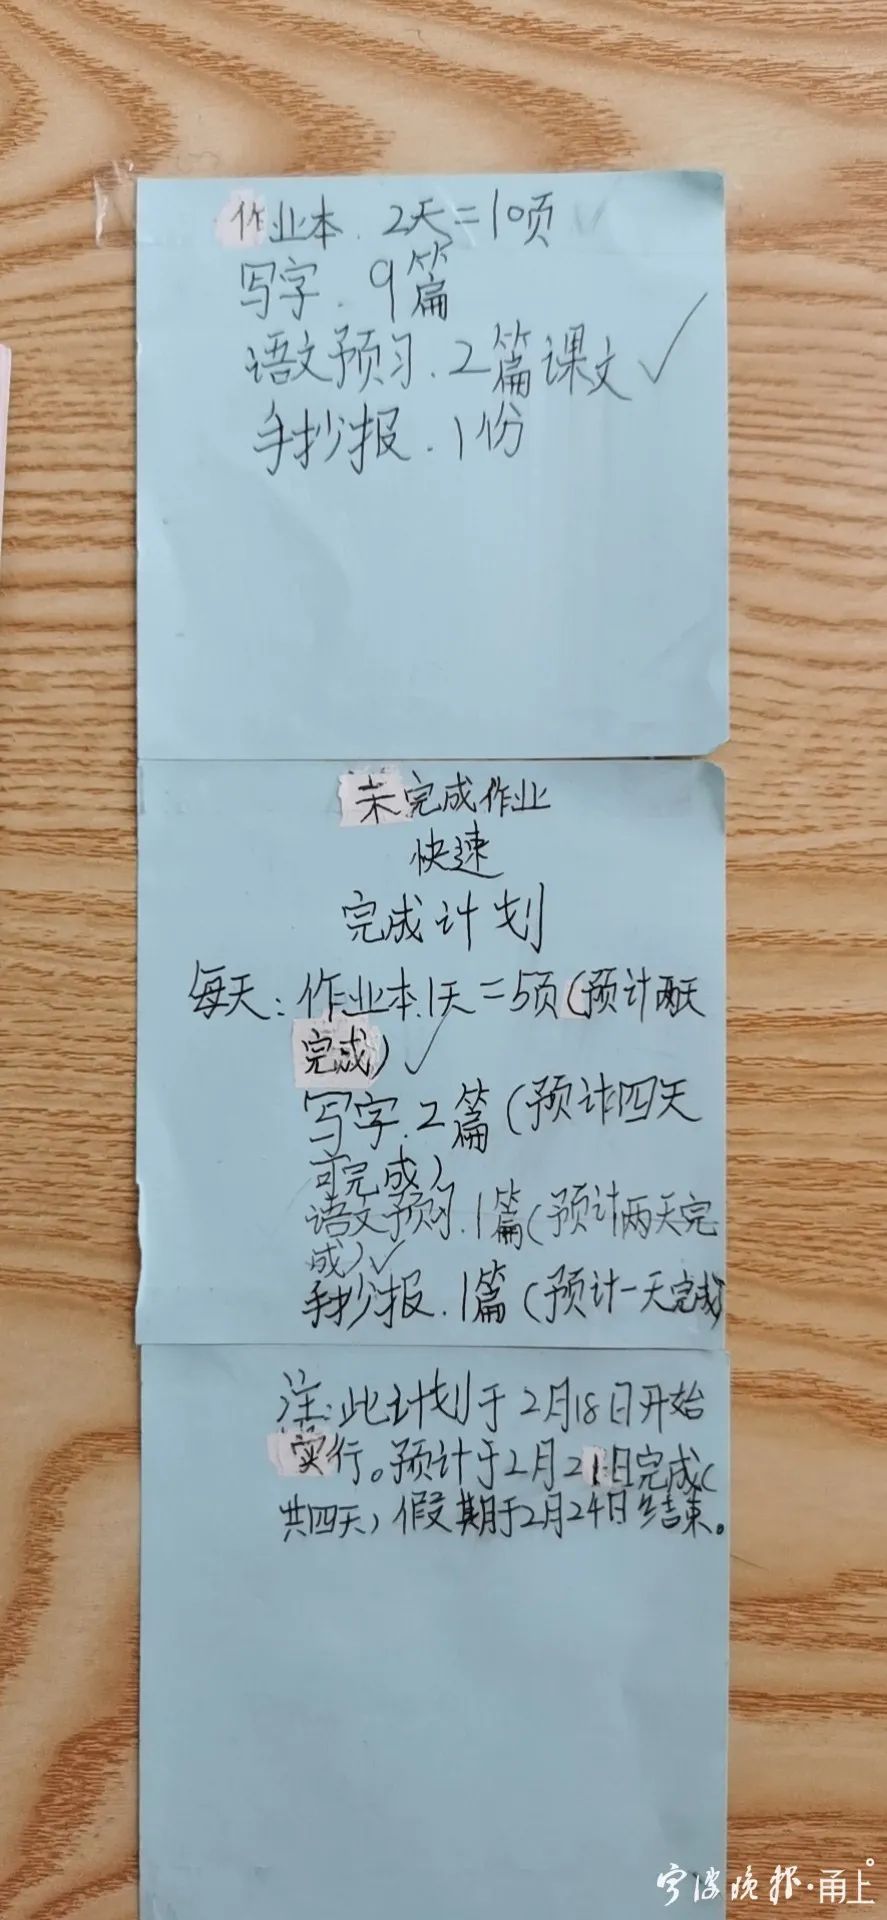 作业本.2天=10项
写字.9篇
语文预习.2篇课文✓
手抄报.1份
未完成作业
快速
完成计划
每天:作业本.1天=5项(预计两天
完成)✓
写字.2篇(预计四天
可完成)
语文预习.1篇(预计两天完
成)✓
手抄报.1篇(预计一天完成)
注:此计划于2月18日开始
实行。预计于2月21日完成(
共四天)假期于2月24日结束。
宁波晚报·甬上